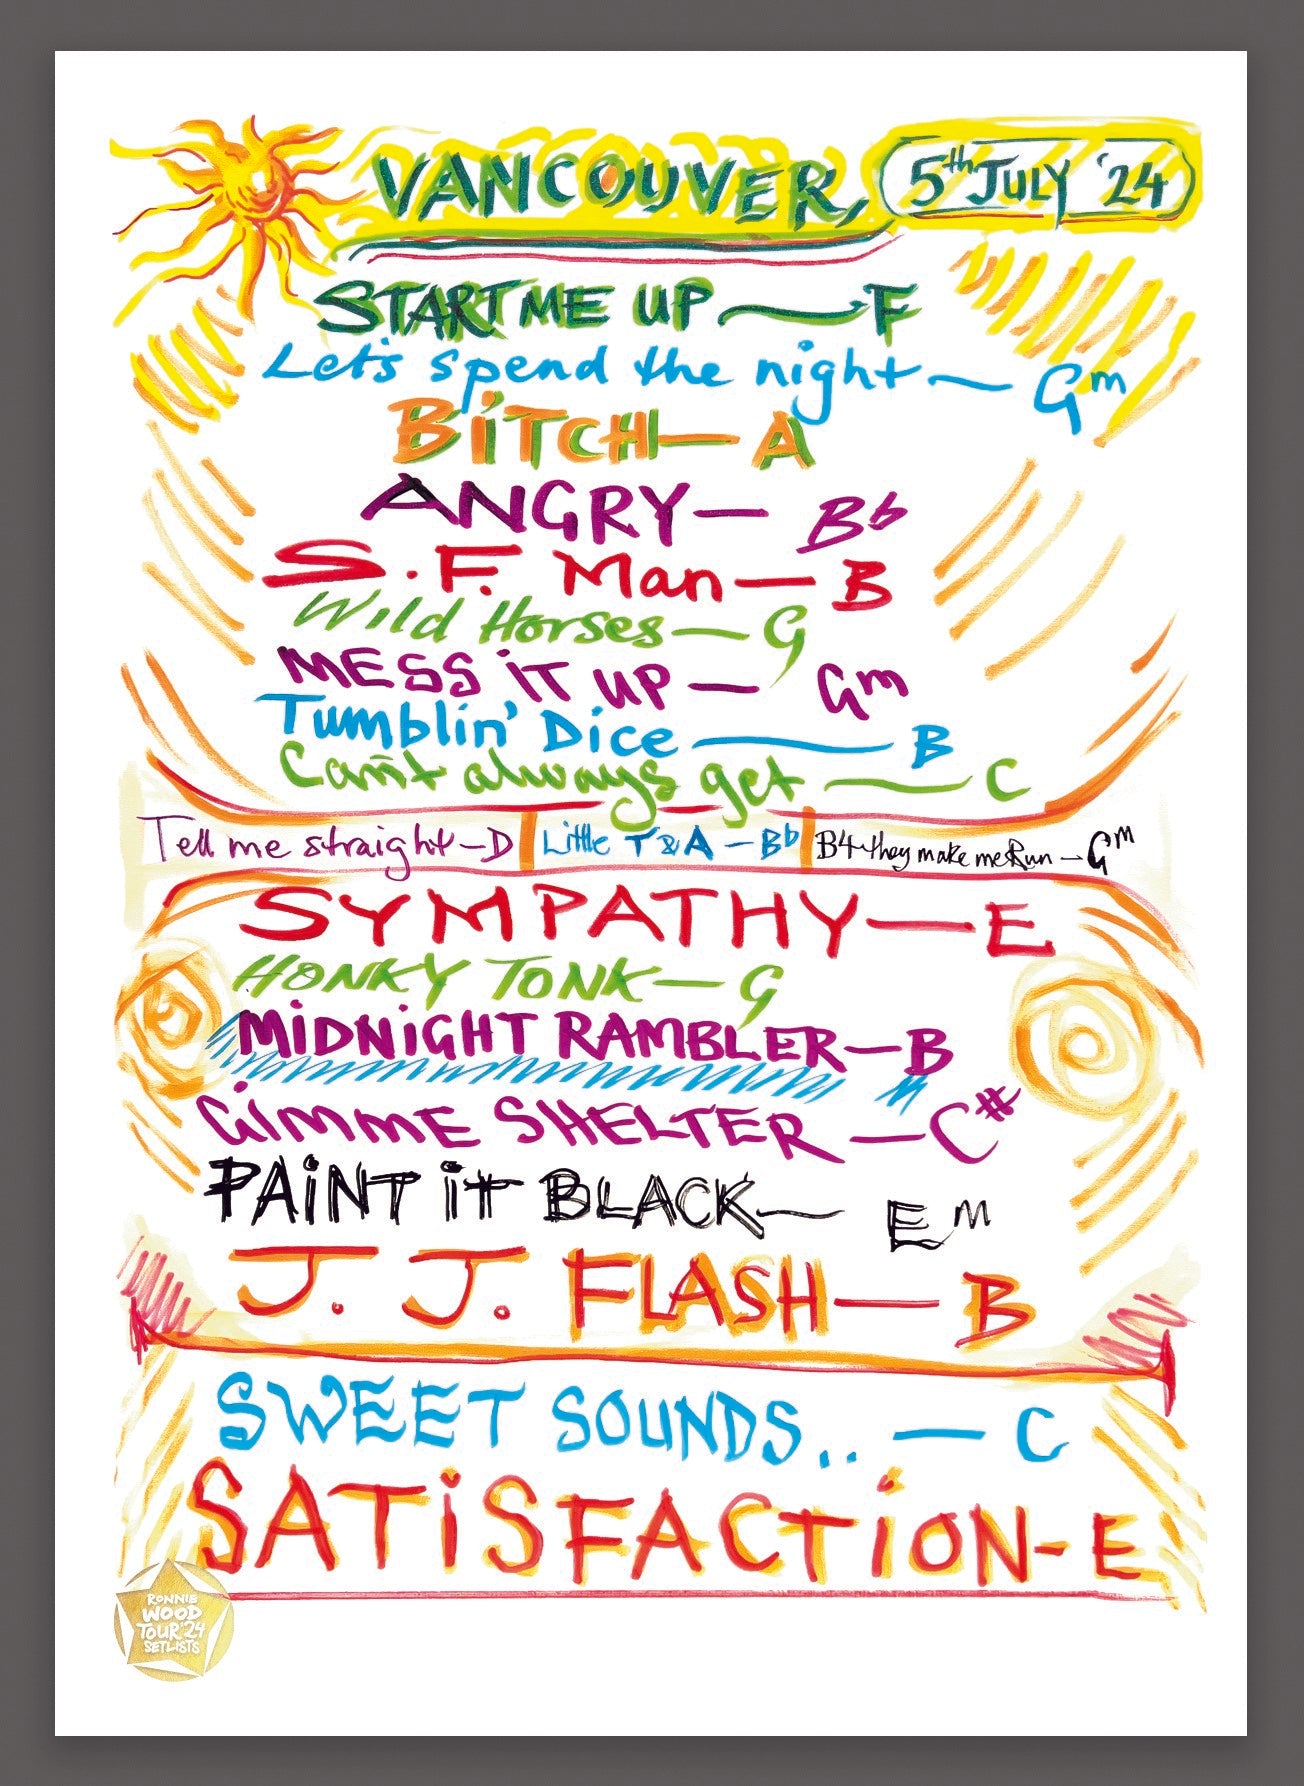 VANCOUVER, 5th JULY '24
START ME UP — F
Let's spend the night — Gm
BiTCH — A
ANGRY — Bb
S.F. Man — B
Wild Horses — G
MESS iT UP — Gm
Tumblin' Dice — B
Can't always get — C
Tell me straight — D Little T & A — Bb B4 they make me Run — Gm
SYMPATHY — E
HONKY TONK — G
MiDNiGHT RAMBLER — B
GiMME SHELTER — C#
PAiNT iT BLACK — Em
J. J. FLASH — B
SWEET SOUNDS.. — C
SATiSFACTiON - E
RONNIE
WOOD
TOUR '24
SETLISTS